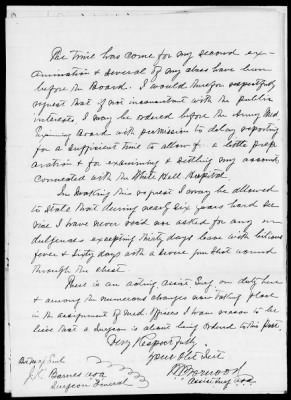 The time has come for my second ex-
amination & several of my class have been
before the Board. I would therefore respectfully
request that if not inconsistent with the public
interests I may be ordered before the Army Med
Examining Board with permission to delay reporting
for a sufficient time to allow of a little prep-
aration & for examining & settling my accounts
connected with the White Hall Hospital.
In making this request I may be allowed
to state that during nearly six years hard ser
vice I have never rec'd nor asked for any in
dulgences excepting thirty days leave with bilious
fever & sixty days with a severe gun shot wound
through the chest.
There is an acting assist. Surg on duty here
& among the numerous changes now taking place
in the assignment of med. officers I have reason to be
lieve that a Surgeon is about being ordered to this Post.
Very Respectfully
Your Obt Svt
Assist Surg USA
J.K. Barnes USA
Surgeon General